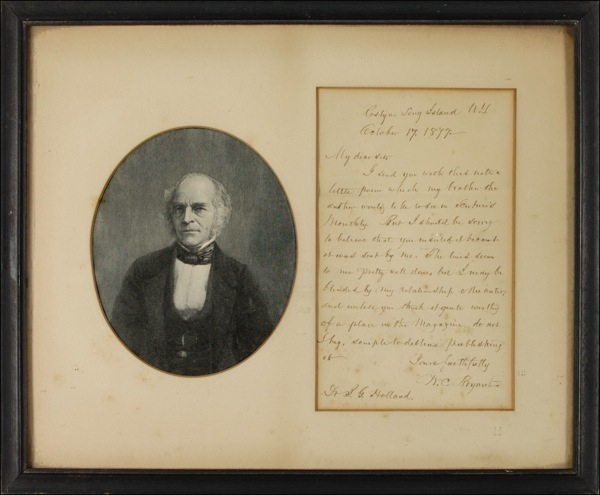 Roslyn Long Island N.Y.
October 17, 1877.
My dear sir
I send you with this note a
little poem which my brother the
author would like to see in Scribner's
Monthly. But I should be sorry
to believe that you inserted it because
it was sent by me. The lines seem
to me pretty well done but I may be
blinded by my relationship to the author,
and unless you think it quite worthy
of a place in the Magazine do not
I beg, scruple to decline publishing
it
Yours faithfully
W. C. Bryant.
Dr J. G. Holland.